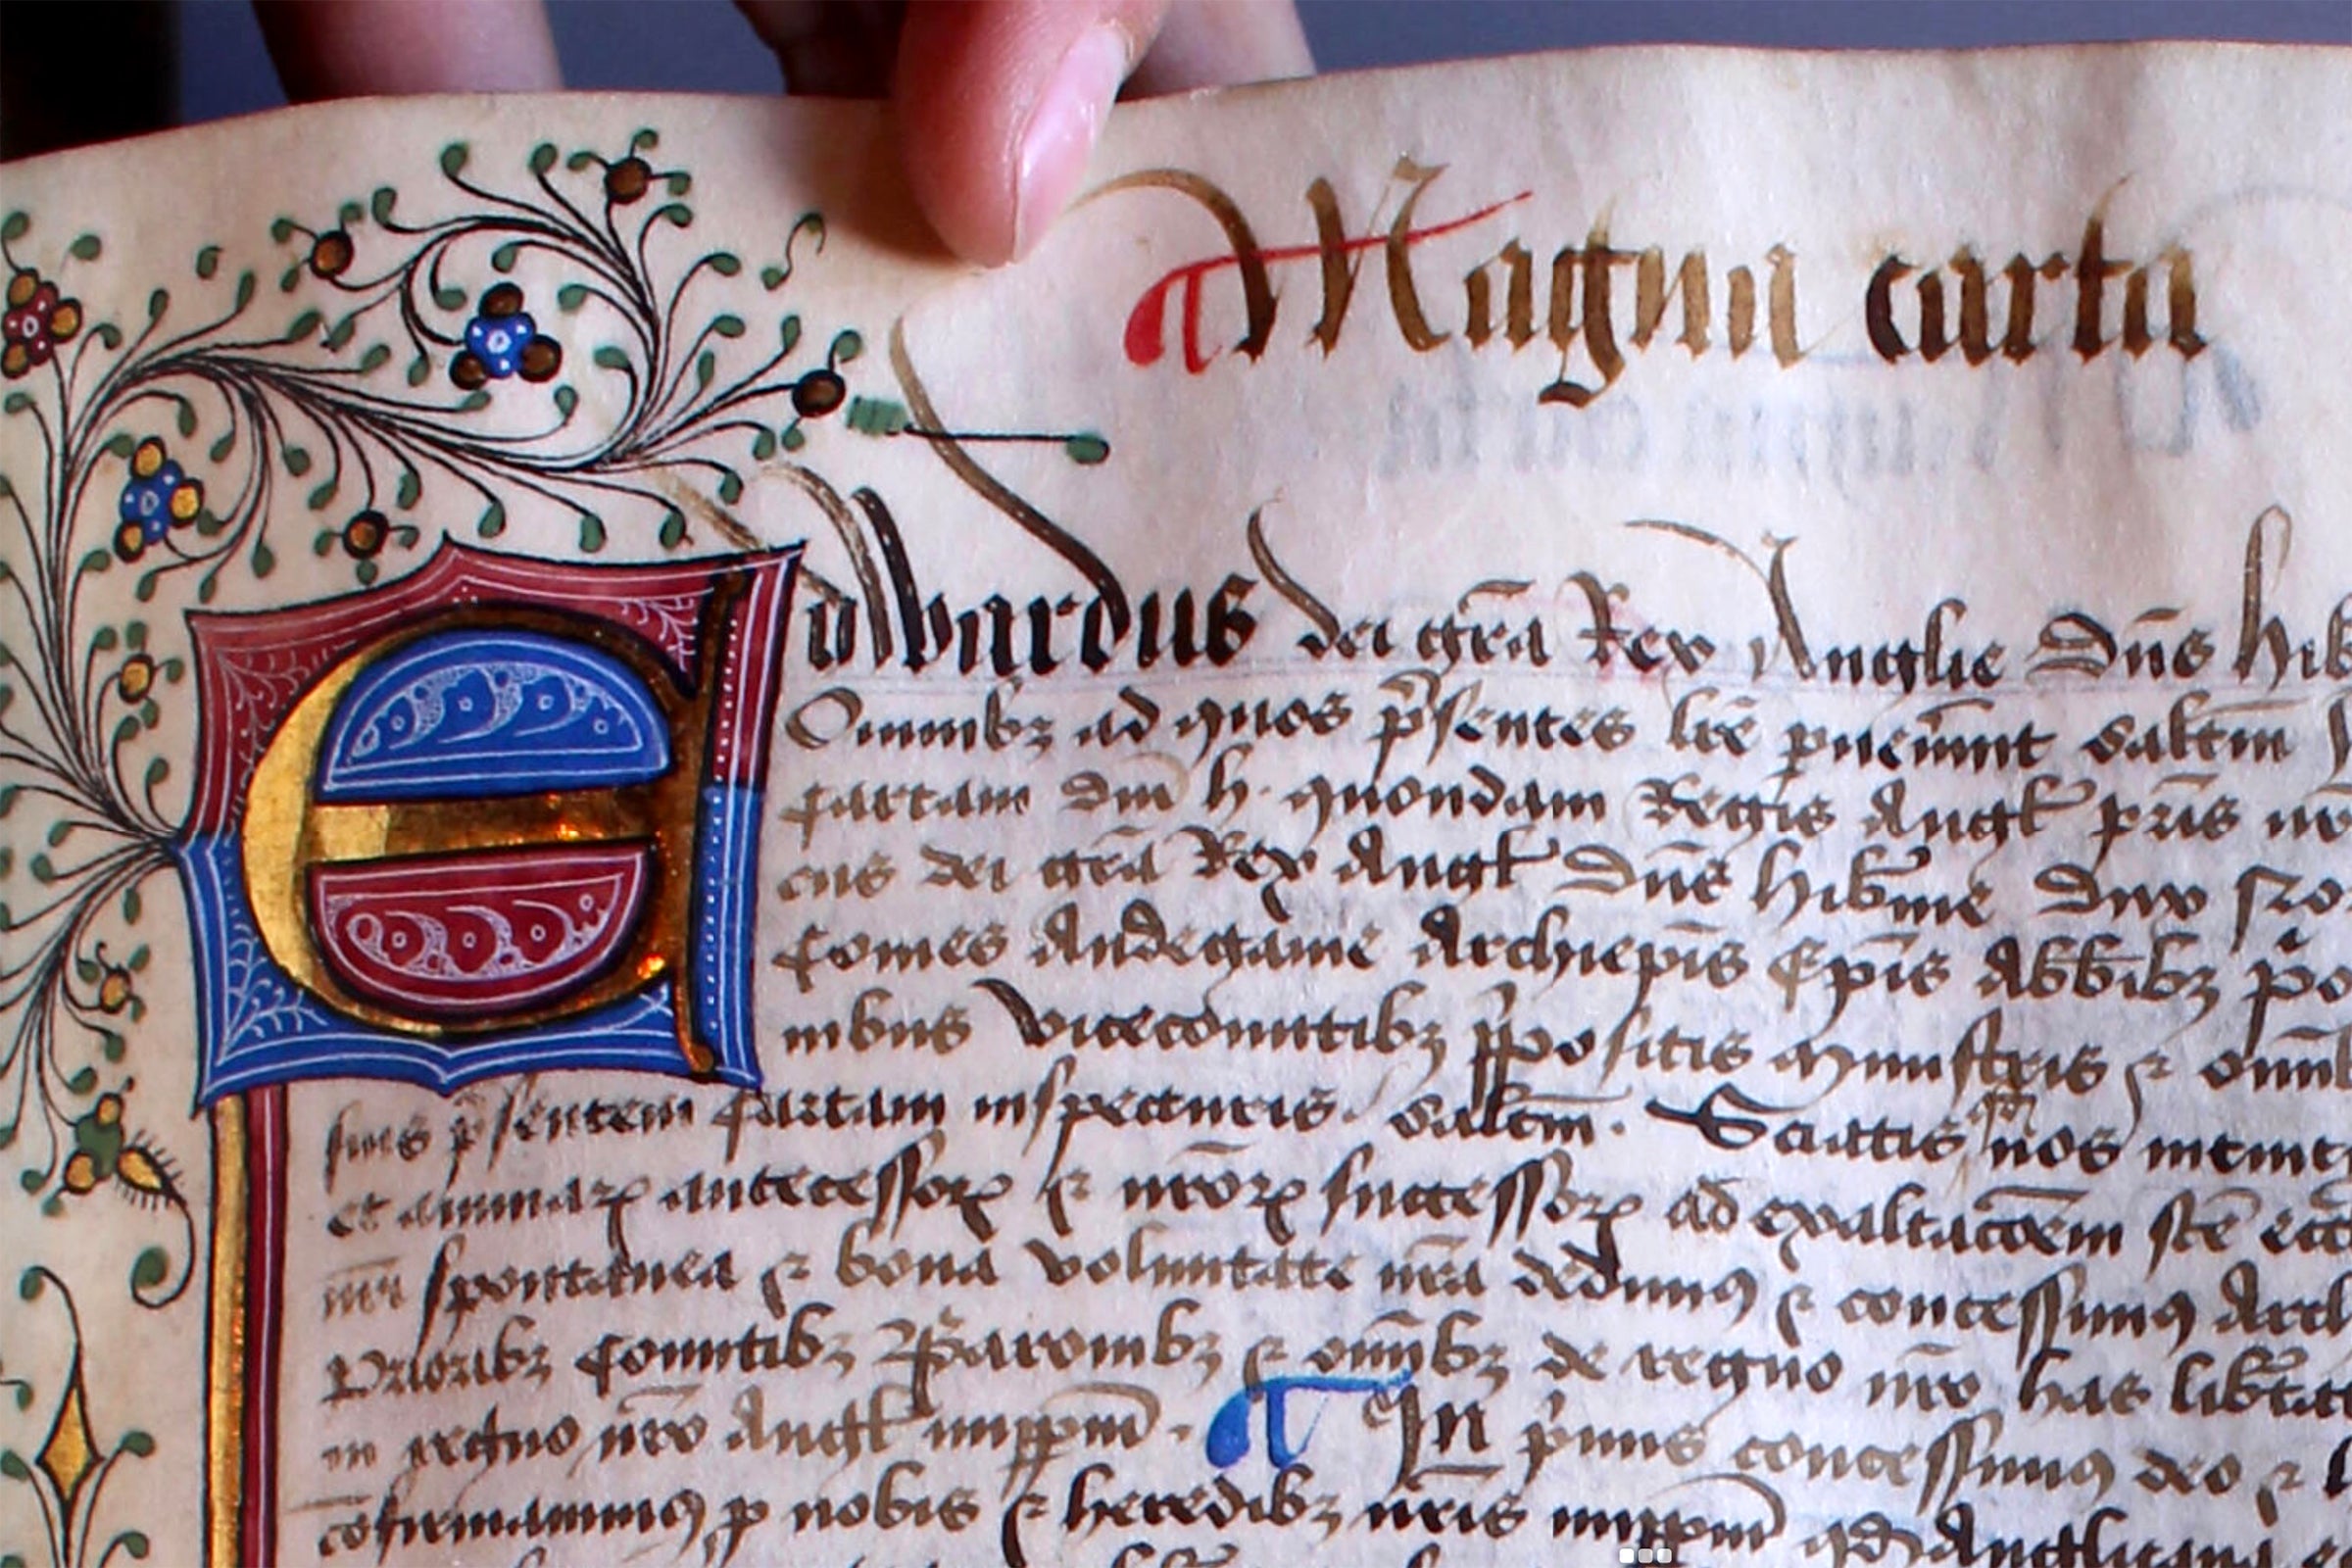 Magna carta
Edwardus dei gr̄a Rex Anglie Dn̄s Hib
Omnibꝫ ad quos p̄sentes lr̄e puen̄int saltm̄
Cartam dn̄i h. quondam Regis Angł pr̄is nr̄
cus dei gr̄a Rex Angł Dn̄s hib̄nie Dux
Comes Andegauie Archiep̄is Ep̄is Abb̄ibꝫ
nibus vicecomitibꝫ p̄positis Ministris ⁊ om̄ib
suis p̄sentem Cartam inspecturis. saltm̄. Sciatis qd̄ nos
et animaꝝ antecessoꝝ ⁊ nr̄oꝝ successoꝝ ad exaltacōem sc̄e
nr̄i spontanea ⁊ bona voluntate nr̄a dedimꝰ ⁊ concessimꝰ Arch
Prioribꝫ Comitibꝫ Baronibꝫ ⁊ om̄ibꝫ de regno nr̄o has lib̄tat
in regno nr̄o Angł imppm̄. In p̄mis concessimꝰ deo ⁊
cōfirmauimꝰ ꝑ nobis ⁊ heredibꝫ nr̄is imppm̄ qd̄ Anglicana